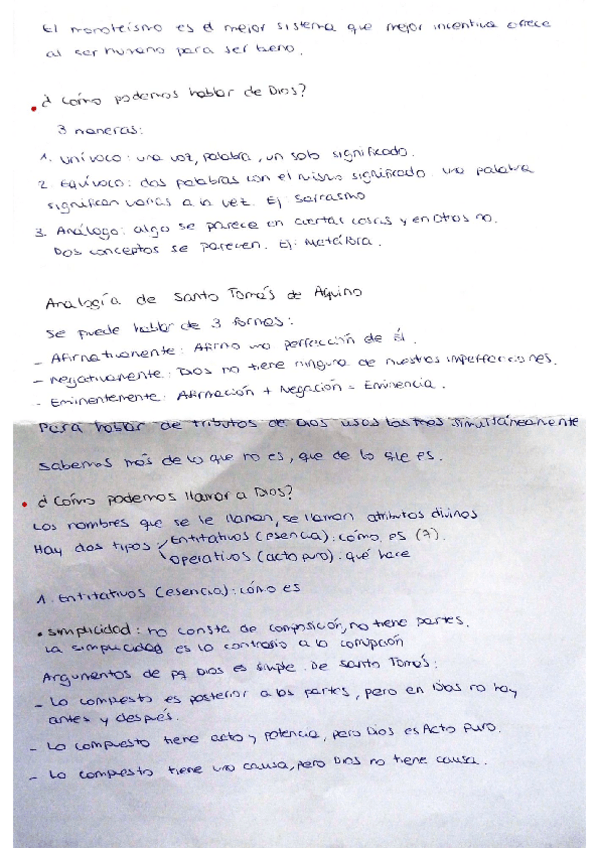 El monoteísmo es el mejor sistema que mejor incentiva ofrece
al ser humano para ser bueno.
• ¿Cómo podemos hablar de Dios?
3 maneras:
1. Unívoco: una voz, palabra, un solo significado.
2. Equívoco: dos palabras con el mismo significado. una palabra
significan varias a la vez. Ej: Sarcasmo
3. Análogo: algo se parece en ciertas cosas y en otros no.
Dos conceptos se parecen. Ej: Metáfora.
Analogía de Santo Tomás de Aquino
Se puede hablar de 3 formas:
- Afirmativamente: Afirmo una perfección de él.
- Negativamente: Dios no tiene ninguna de nuestras imperfecciones.
- Eminentemente: Afirmación + Negación = Eminencia.
Para hablar de tributos de Dios usas las tres simultáneamente
Sabemos más de lo que no es, que de lo que es.
• ¿Cómo podemos llamar a Dios?
Los nombres que se le llaman, se llaman atributos divinos
Hay dos tipos / Entitativos (esencia): cómo es (7).
\ Operativos (acto puro): qué hace
1. Entitativos (esencia): cómo es
• Simplicidad: no consta de composición, no tiene partes.
La simplicidad es lo contrario a la corrupción
Argumentos de pq Dios es simple. De Santo Tomás:
- Lo compuesto es posterior a las partes, pero en Dios no hay
antes y después.
- Lo compuesto tiene acto y potencia, pero Dios es Acto Puro.
- Lo compuesto tiene una causa, pero Dios no tiene causa.